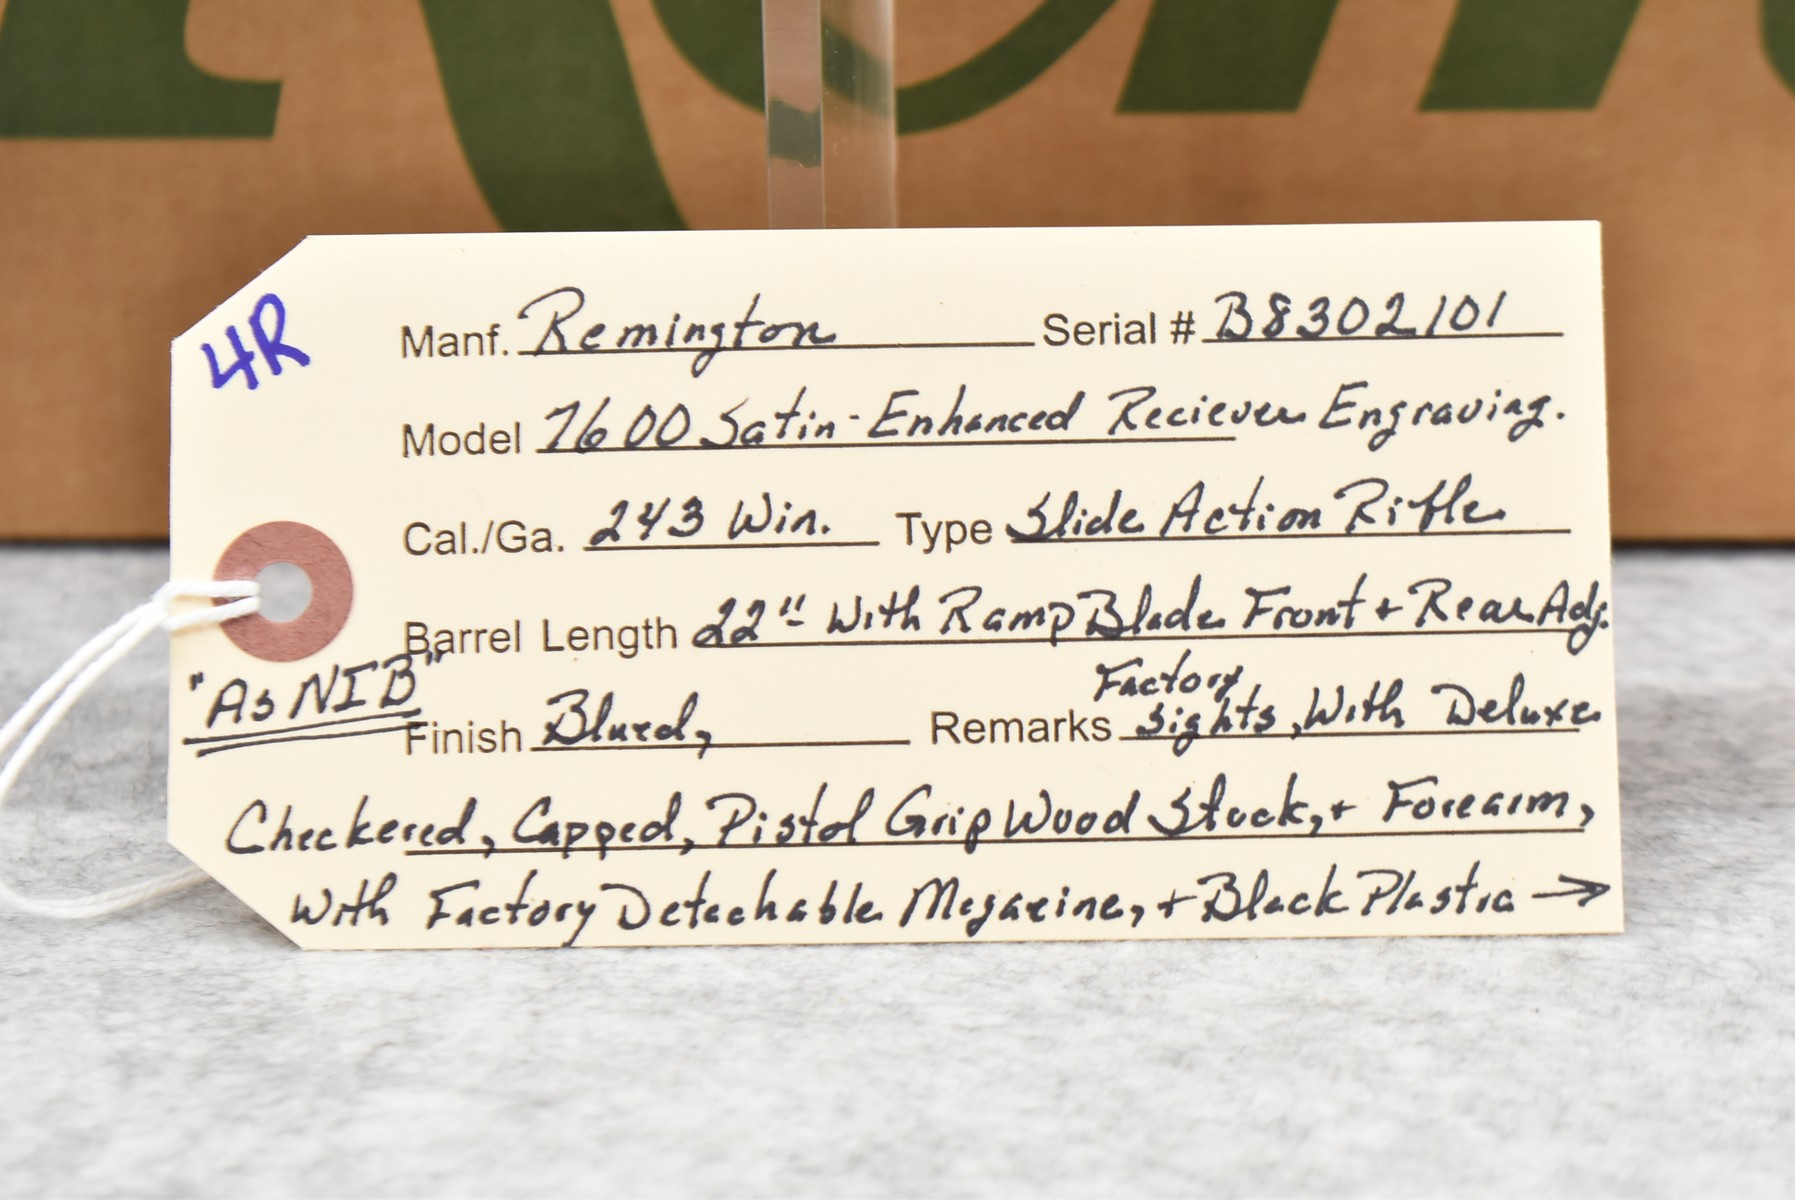 4R
Manf. Remington Serial # B8302101
Model 7600 Satin-Enhanced Reciever Engraving.
Cal./Ga. 243 Win. Type Slide Action Rifle
Barrel Length 22" With Ramp Blade Front + Rear Adj.
"As NIB"
Finish Blued, Remarks Factory Sights, With Deluxe
Checkered, Capped, Pistol Grip Wood Stock, + Forearm,
With Factory Detachable Magazine, + Black Plastic →